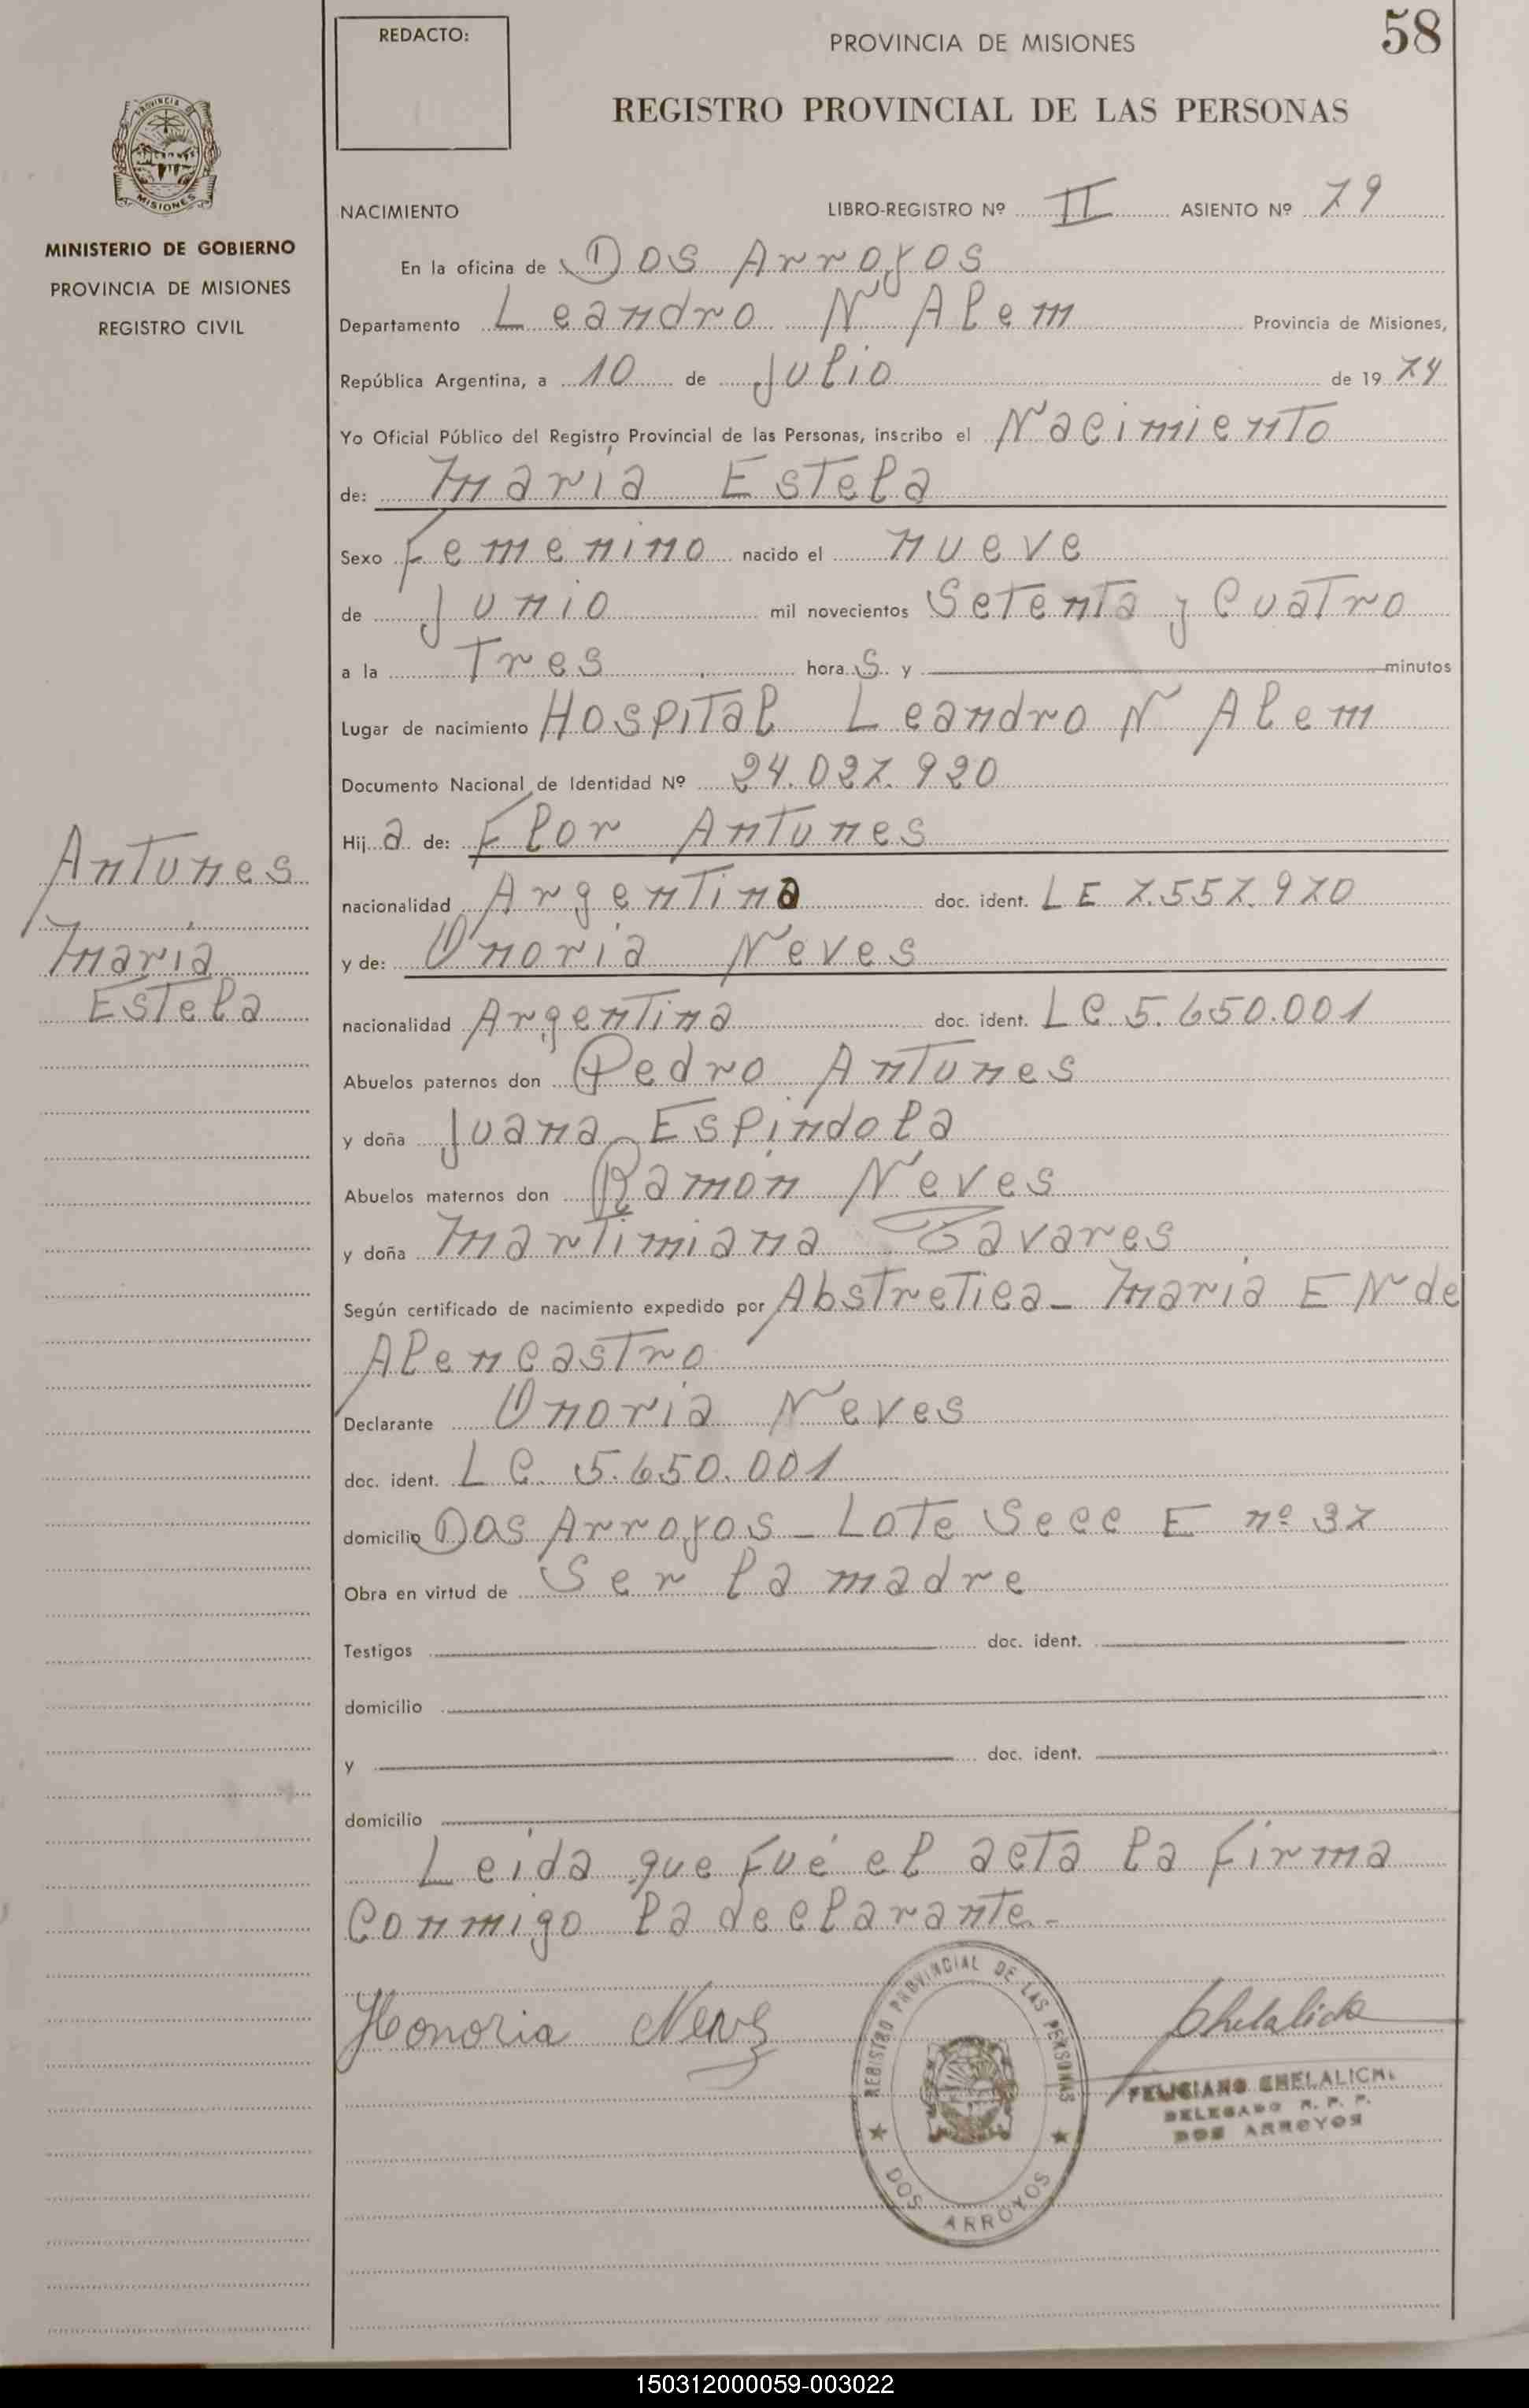 REDACTO:
PROVINCIA DE MISIONES
58
REGISTRO PROVINCIAL DE LAS PERSONAS
PROVINCIA DE
MISIONES
MINISTERIO DE GOBIERNO
PROVINCIA DE MISIONES
REGISTRO CIVIL
NACIMIENTO LIBRO-REGISTRO Nº II ASIENTO Nº 79
En la oficina de Dos Arroyos
Departamento Leandro N Alem Provincia de Misiones,
República Argentina, a 10 de Julio de 1974
Yo Oficial Público del Registro Provincial de las Personas, inscribo el Nacimiento
de: Maria Estela
Sexo Femenino nacido el nueve
de Junio mil novecientos Setenta y Cuatro
a la Tres horas y minutos
Lugar de nacimiento Hospital Leandro N Alem
Documento Nacional de Identidad Nº 24.027.920
Hija de: Flor Antunes
nacionalidad Argentina doc. ident. LE 7.557.970
y de: Onoria Neves
nacionalidad Argentina doc. ident. LC 5.650.001
Abuelos paternos don Pedro Antunes
y doña Juana Espindola
Abuelos maternos don Ramón Neves
y doña Martimiana Tavares
Según certificado de nacimiento expedido por Abstretica - Maria E N de
Alencastro
Declarante Onoria Neves
doc. ident. LC. 5.650.001
domicilio Dos Arroyos - Lote Secc E nº 37
Obra en virtud de Ser la madre
Testigos doc. ident.
domicilio
y doc. ident.
domicilio
Leida que fué el acta la firma
Conmigo la declarante.-
Antunes
Maria
Estela
Honoria Neves
REGISTRO PROVINCIAL DE LAS PERSONAS
DOS ARROYOS
Chelalichi
FELICIANO CHELALICHI
DELEGADO R. P. P.
DOS ARROYOS
150312000059-003022